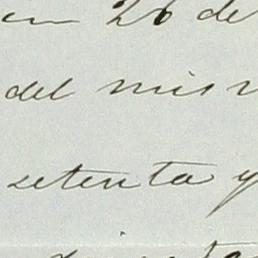 en 26 de
del mis
setenta y